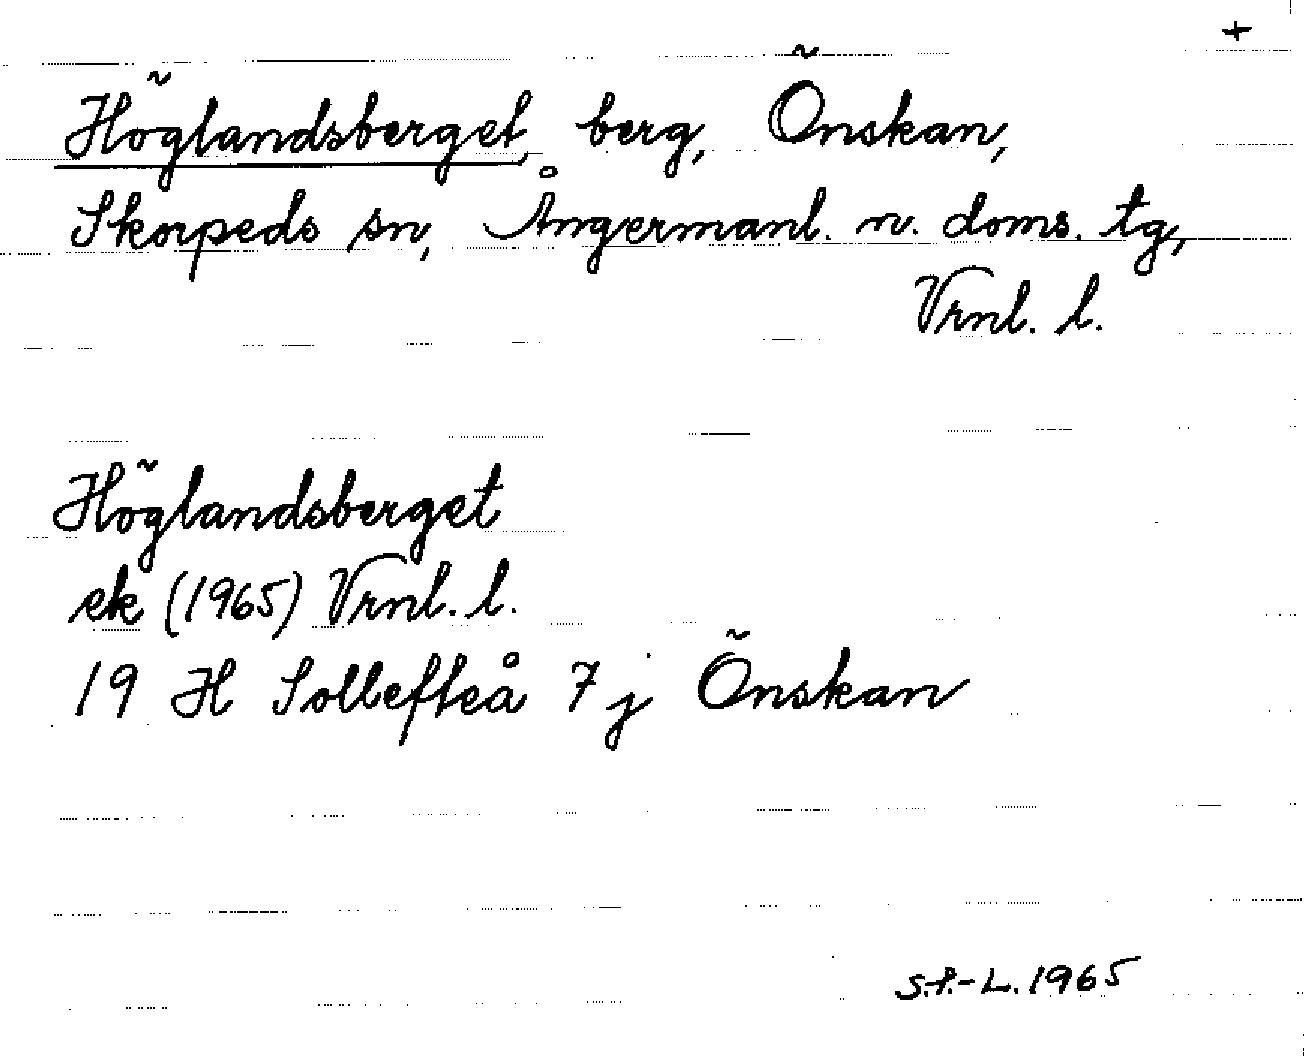 +
Höglandsberget, berg, Önskan,
Skorpeds sn, Ångermanl. n. doms. tg,
Vrnl. l.
Höglandsberget
ek (1965) Vrnl. l.
19 H Sollefteå 7 j Önskan
S.f.-L. 1965